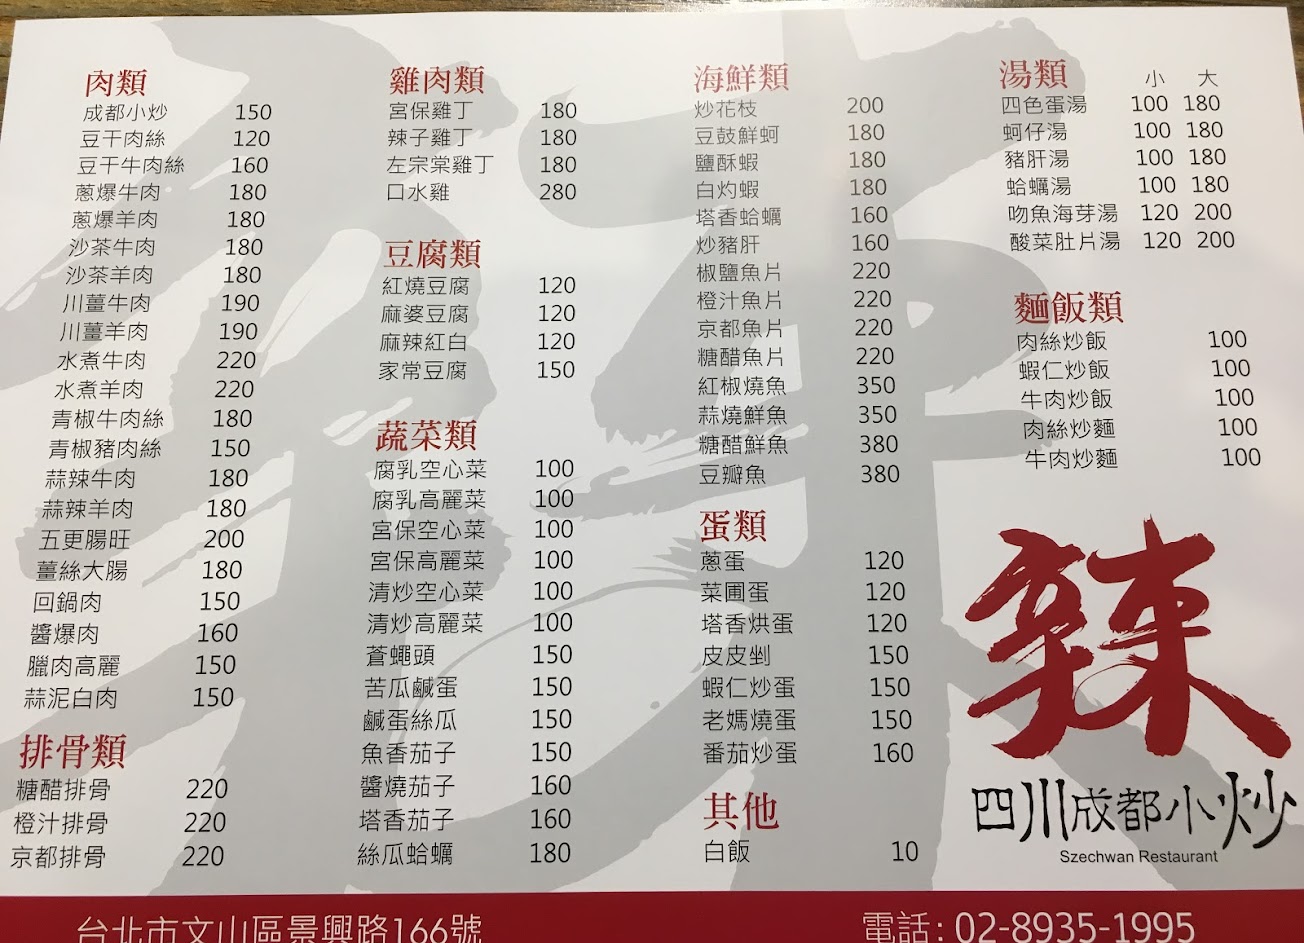 肉類
成都小炒 150
豆干肉絲 120
豆干牛肉絲 160
蔥爆牛肉 180
蔥爆羊肉 180
沙茶牛肉 180
沙茶羊肉 180
川薑牛肉 190
川薑羊肉 190
水煮牛肉 220
水煮羊肉 220
青椒牛肉絲 180
青椒豬肉絲 150
蒜辣牛肉 180
蒜辣羊肉 180
五更腸旺 200
薑絲大腸 180
回鍋肉 150
醬爆肉 160
臘肉高麗 150
蒜泥白肉 150
排骨類
糖醋排骨 220
橙汁排骨 220
京都排骨 220
雞肉類
宮保雞丁 180
辣子雞丁 180
左宗棠雞丁 180
口水雞 280
豆腐類
紅燒豆腐 120
麻婆豆腐 120
麻辣紅白 120
家常豆腐 150
蔬菜類
腐乳空心菜 100
腐乳高麗菜 100
宮保空心菜 100
宮保高麗菜 100
清炒空心菜 100
清炒高麗菜 100
蒼蠅頭 150
苦瓜鹹蛋 150
鹹蛋絲瓜 150
魚香茄子 150
醬燒茄子 160
塔香茄子 160
絲瓜蛤蠣 180
海鮮類
炒花枝 200
豆鼓鮮蚵 180
鹽酥蝦 180
白灼蝦 180
塔香蛤蠣 160
炒豬肝 160
椒鹽魚片 220
橙汁魚片 220
京都魚片 220
糖醋魚片 220
紅椒燒魚 350
蒜燒鮮魚 350
糖醋鮮魚 380
豆瓣魚 380
蛋類
蔥蛋 120
菜圃蛋 120
塔香烘蛋 120
皮皮剉 150
蝦仁炒蛋 150
老媽燒蛋 150
番茄炒蛋 160
其他
白飯 10
湯類 小 大
四色蛋湯 100 180
蚵仔湯 100 180
豬肝湯 100 180
蛤蠣湯 100 180
吻魚海芽湯 120 200
酸菜肚片湯 120 200
麵飯類
肉絲炒飯 100
蝦仁炒飯 100
牛肉炒飯 100
肉絲炒麵 100
牛肉炒麵 100
辣
四川成都小炒
Szechwan Restaurant
台北市文山區景興路166號
電話: 02-8935-1995